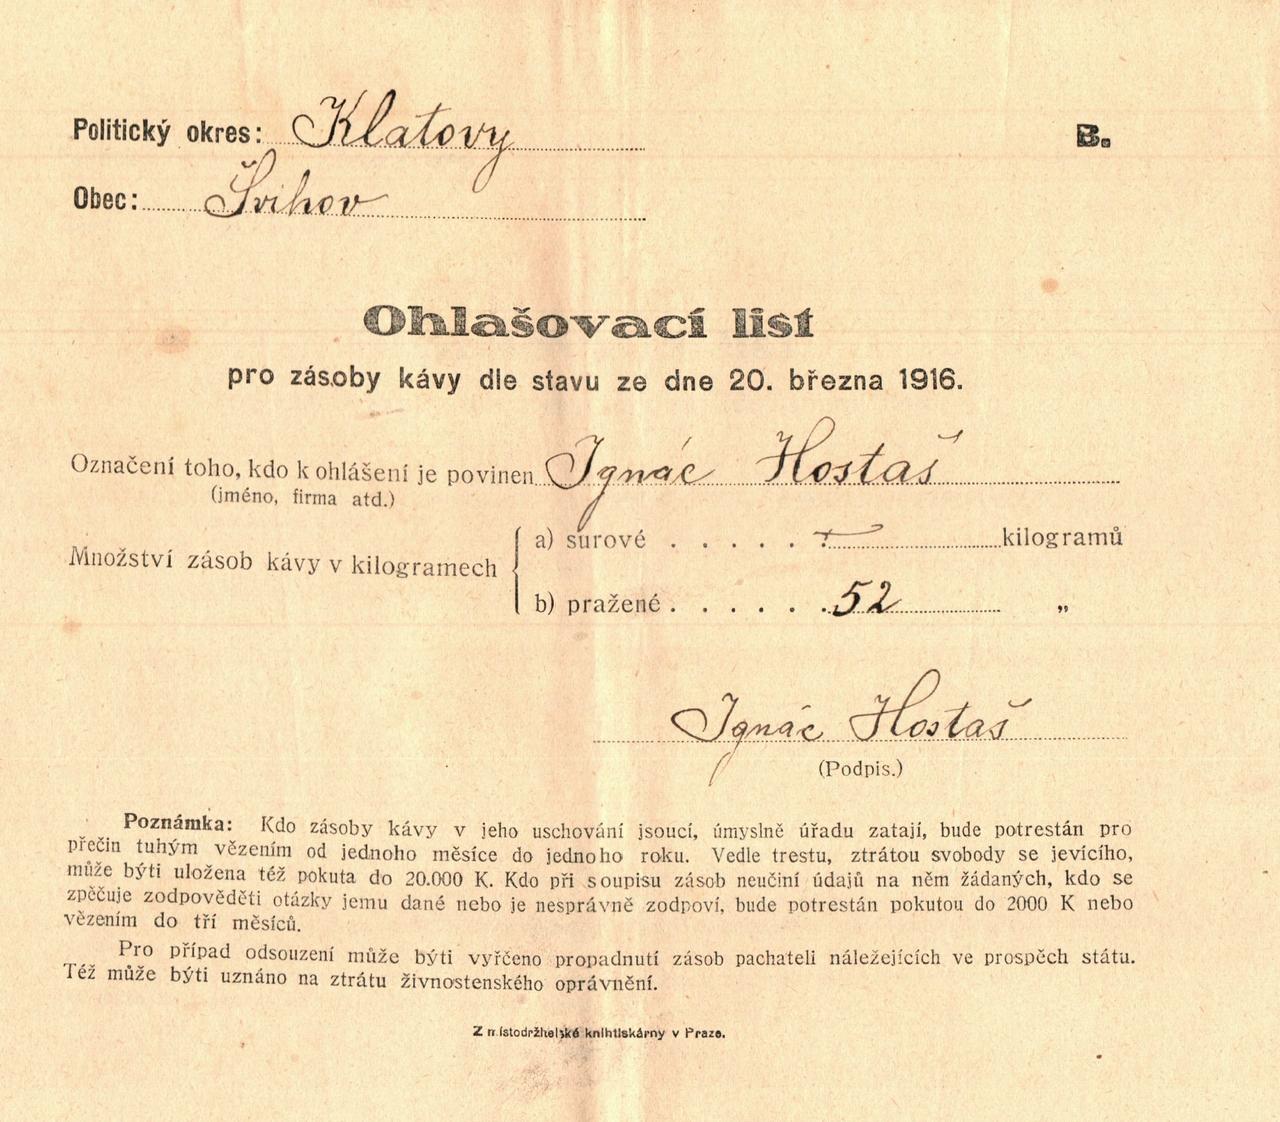 Politický okres: Klatovy
B.
Obec: Švihov
Ohlašovací list
pro zásoby kávy dle stavu ze dne 20. března 1916.
Označení toho, kdo k ohlášení je povinen Ignác Hostaš
(jméno, firma atd.)
Množství zásob kávy v kilogramech
a) surové . . . . . — kilogramů
b) pražené . . . . . . . 52 „
Ignác Hostaš
(Podpis.)
Poznámka: Kdo zásoby kávy v jeho uschování jsoucí, úmyslně úřadu zatají, bude potrestán pro
přečin tuhým vězením od jednoho měsíce do jednoho roku. Vedle trestu, ztrátou svobody se jevícího,
může býti uložena též pokuta do 20.000 K. Kdo při soupisu zásob neučiní údajů na něm žádaných, kdo se
zpěčuje zodpověděti otázky jemu dané nebo je nesprávně zodpoví, bude potrestán pokutou do 2000 K nebo
vězením do tří měsíců.
Pro případ odsouzení může býti vyřčeno propadnutí zásob pachateli náležejících ve prospěch státu.
Též může býti uznáno na ztrátu živnostenského oprávnění.
Z místodržitelské knihtiskárny v Praze.